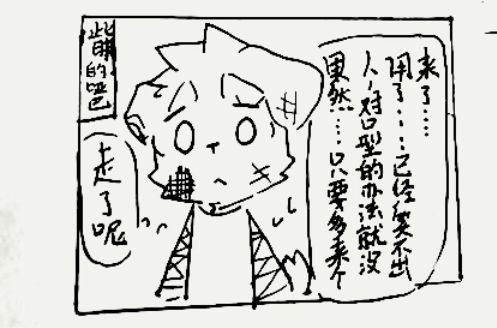 此时的哑巴
走了呢
果然……只要多来个
人,对口型的办法就没
用了……已经笑不出
来了……